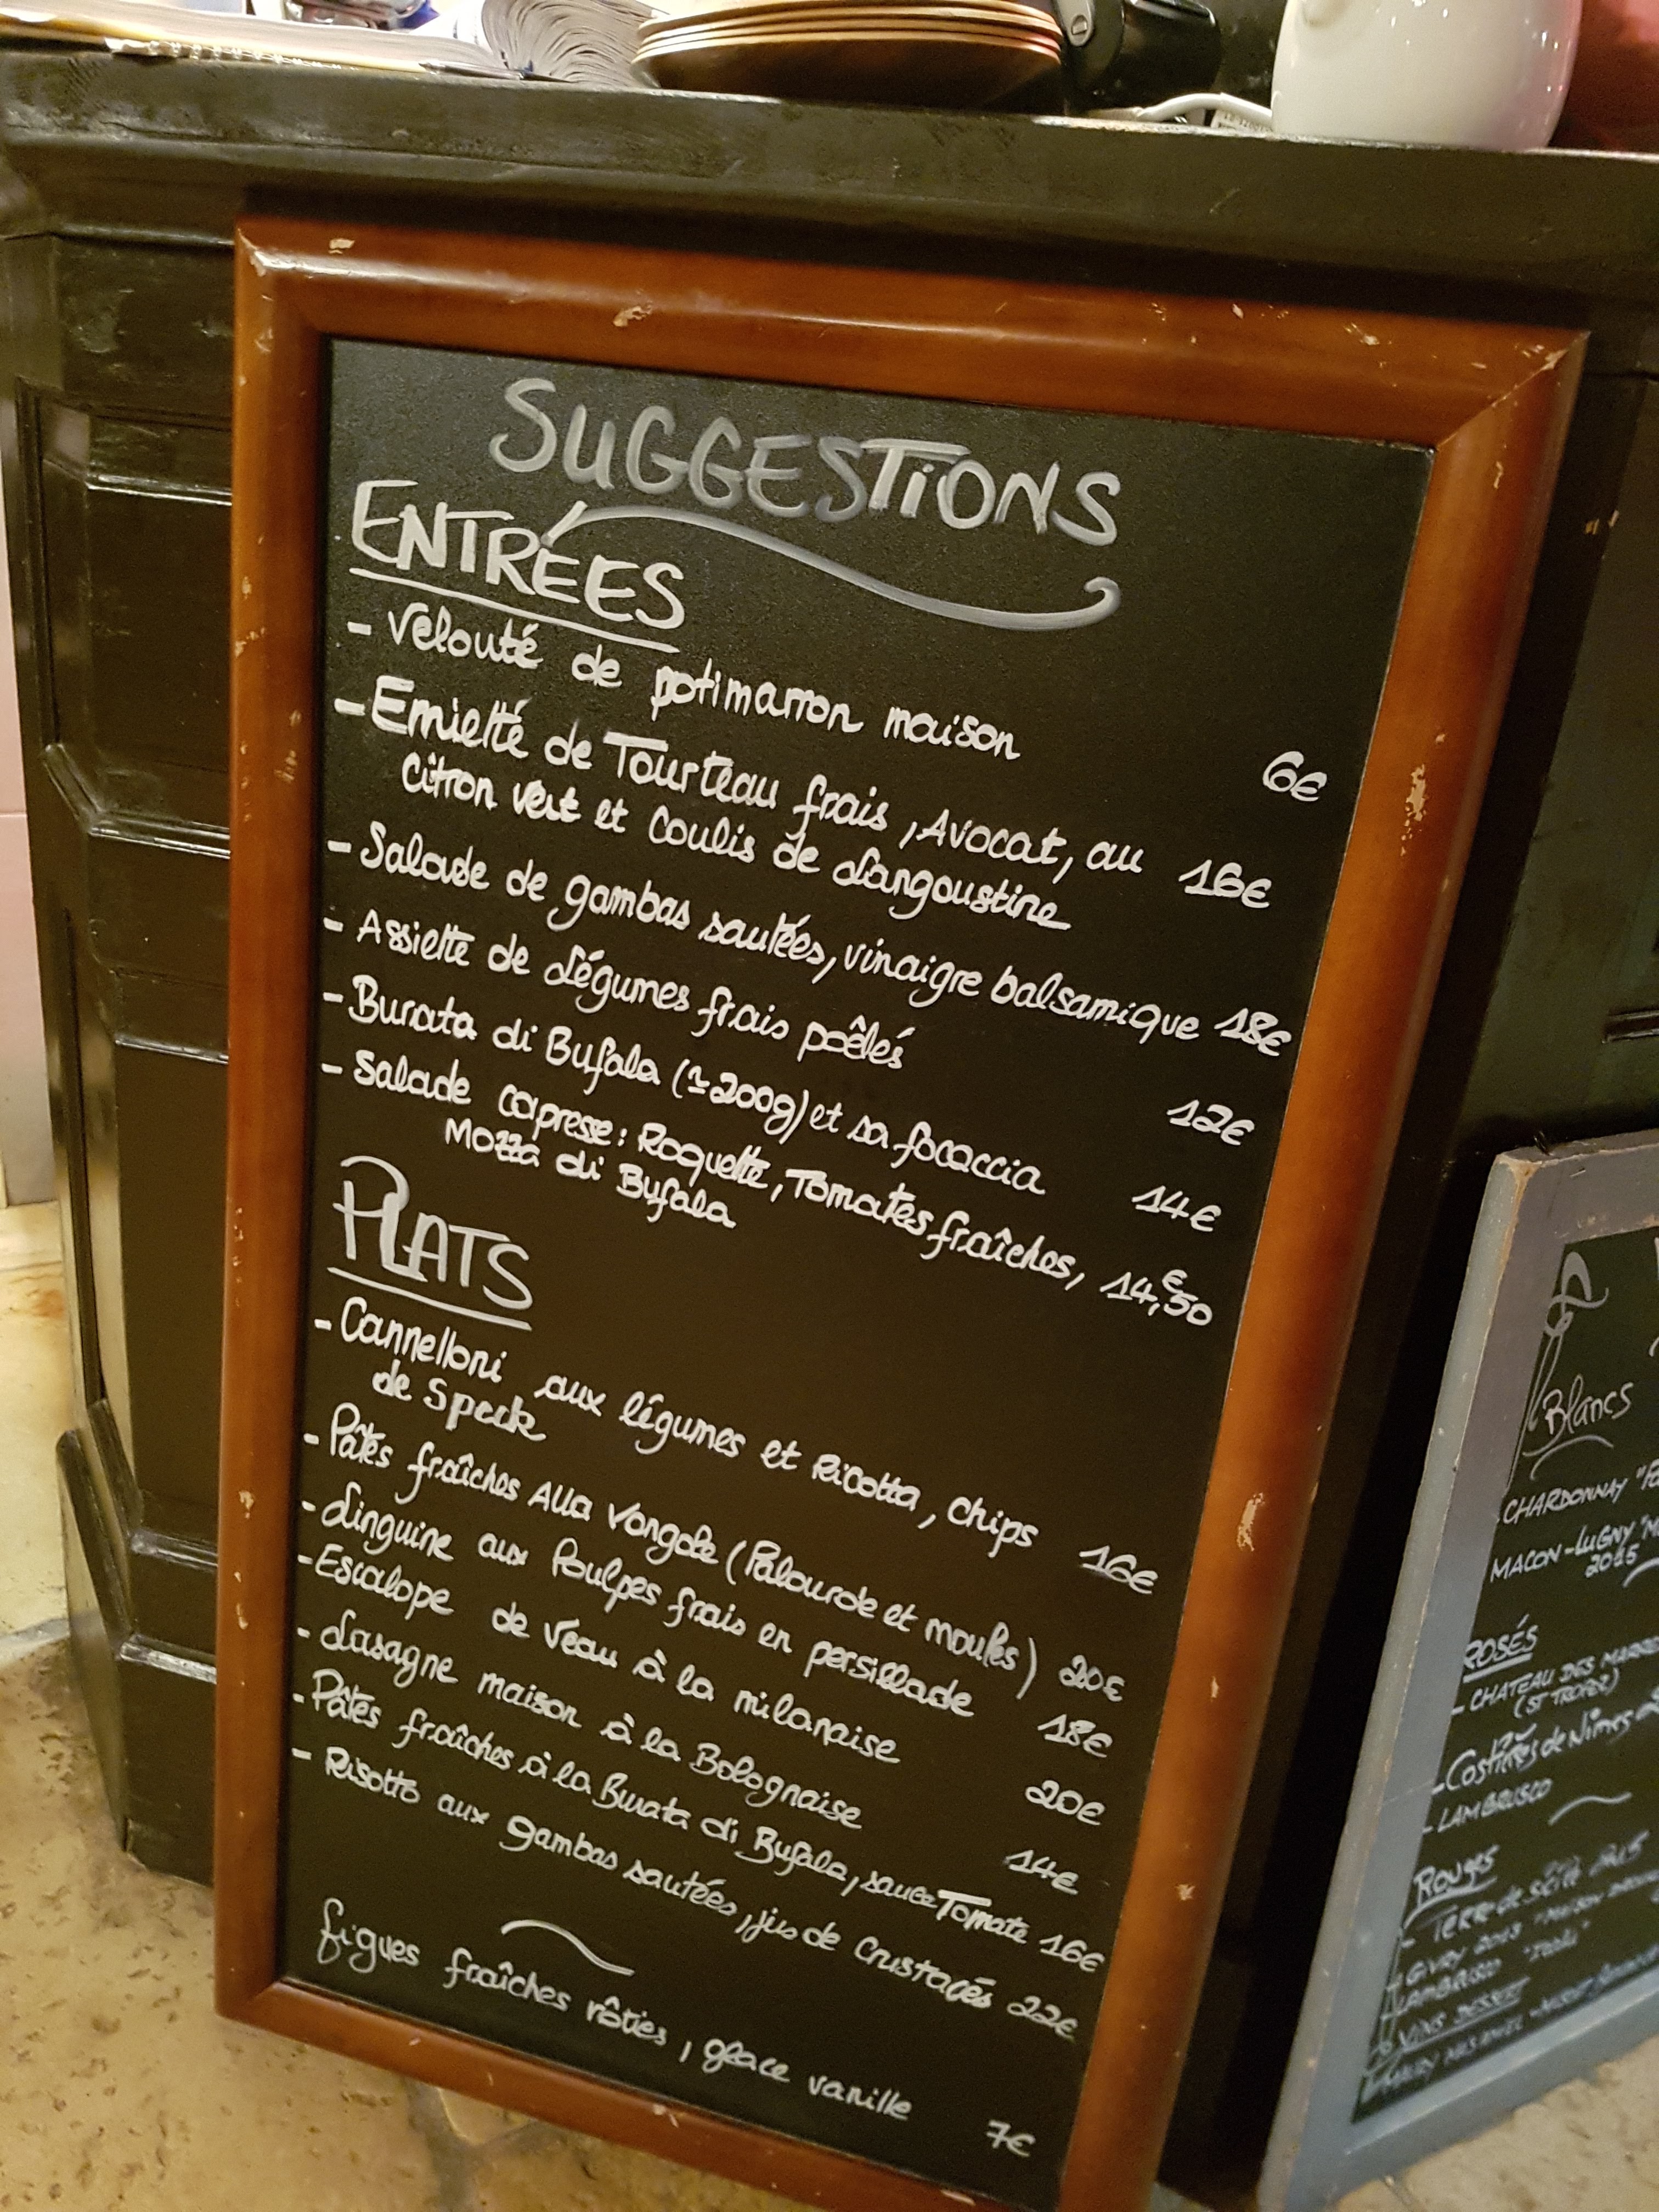 SUGGESTIONS
ENTRÉES
- Velouté de potimarron maison 6€
- Emietté de Tourteau frais, Avocat, au 16€
Citron vert et Coulis de Langoustine
- Salade de gambas sautées, vinaigre balsamique 18€
- Assiette de Légumes frais poêlés 12€
- Burata di Bufala (±200g) et sa focaccia 14€
- Salade caprese: Roquette, Tomates fraîches, 14,50€
Mozza di Bufala
PLATS
- Cannelloni aux légumes et Ricotta, Chips 16€
de Speck
- Pâtes fraîches Alla Vongole (Palourde et moules) 20€
- Linguine aux Poulpes frais en persillade 18€
- Escalope de Veau à la milanaise 20€
- Lasagne maison à la Bolognaise 14€
- Pâtes fraîches à la Burata di Bufala, sauce Tomate 16€
- Risotto aux gambas sautées, jus de Crustacés 22€
figues fraîches rôties, glace vanille 7€
Blancs
CHARDONNAY
MACON-LUGNY
2015
ROSÉS
- CHATEAU DES
(ST TROPEZ)
- Costières de Nîmes
- LAMBRUSCO
Rouges
- Terre de 2015
- GIVRY 2013 "MAISON
LAMBRUSCO
VINS DESSERT